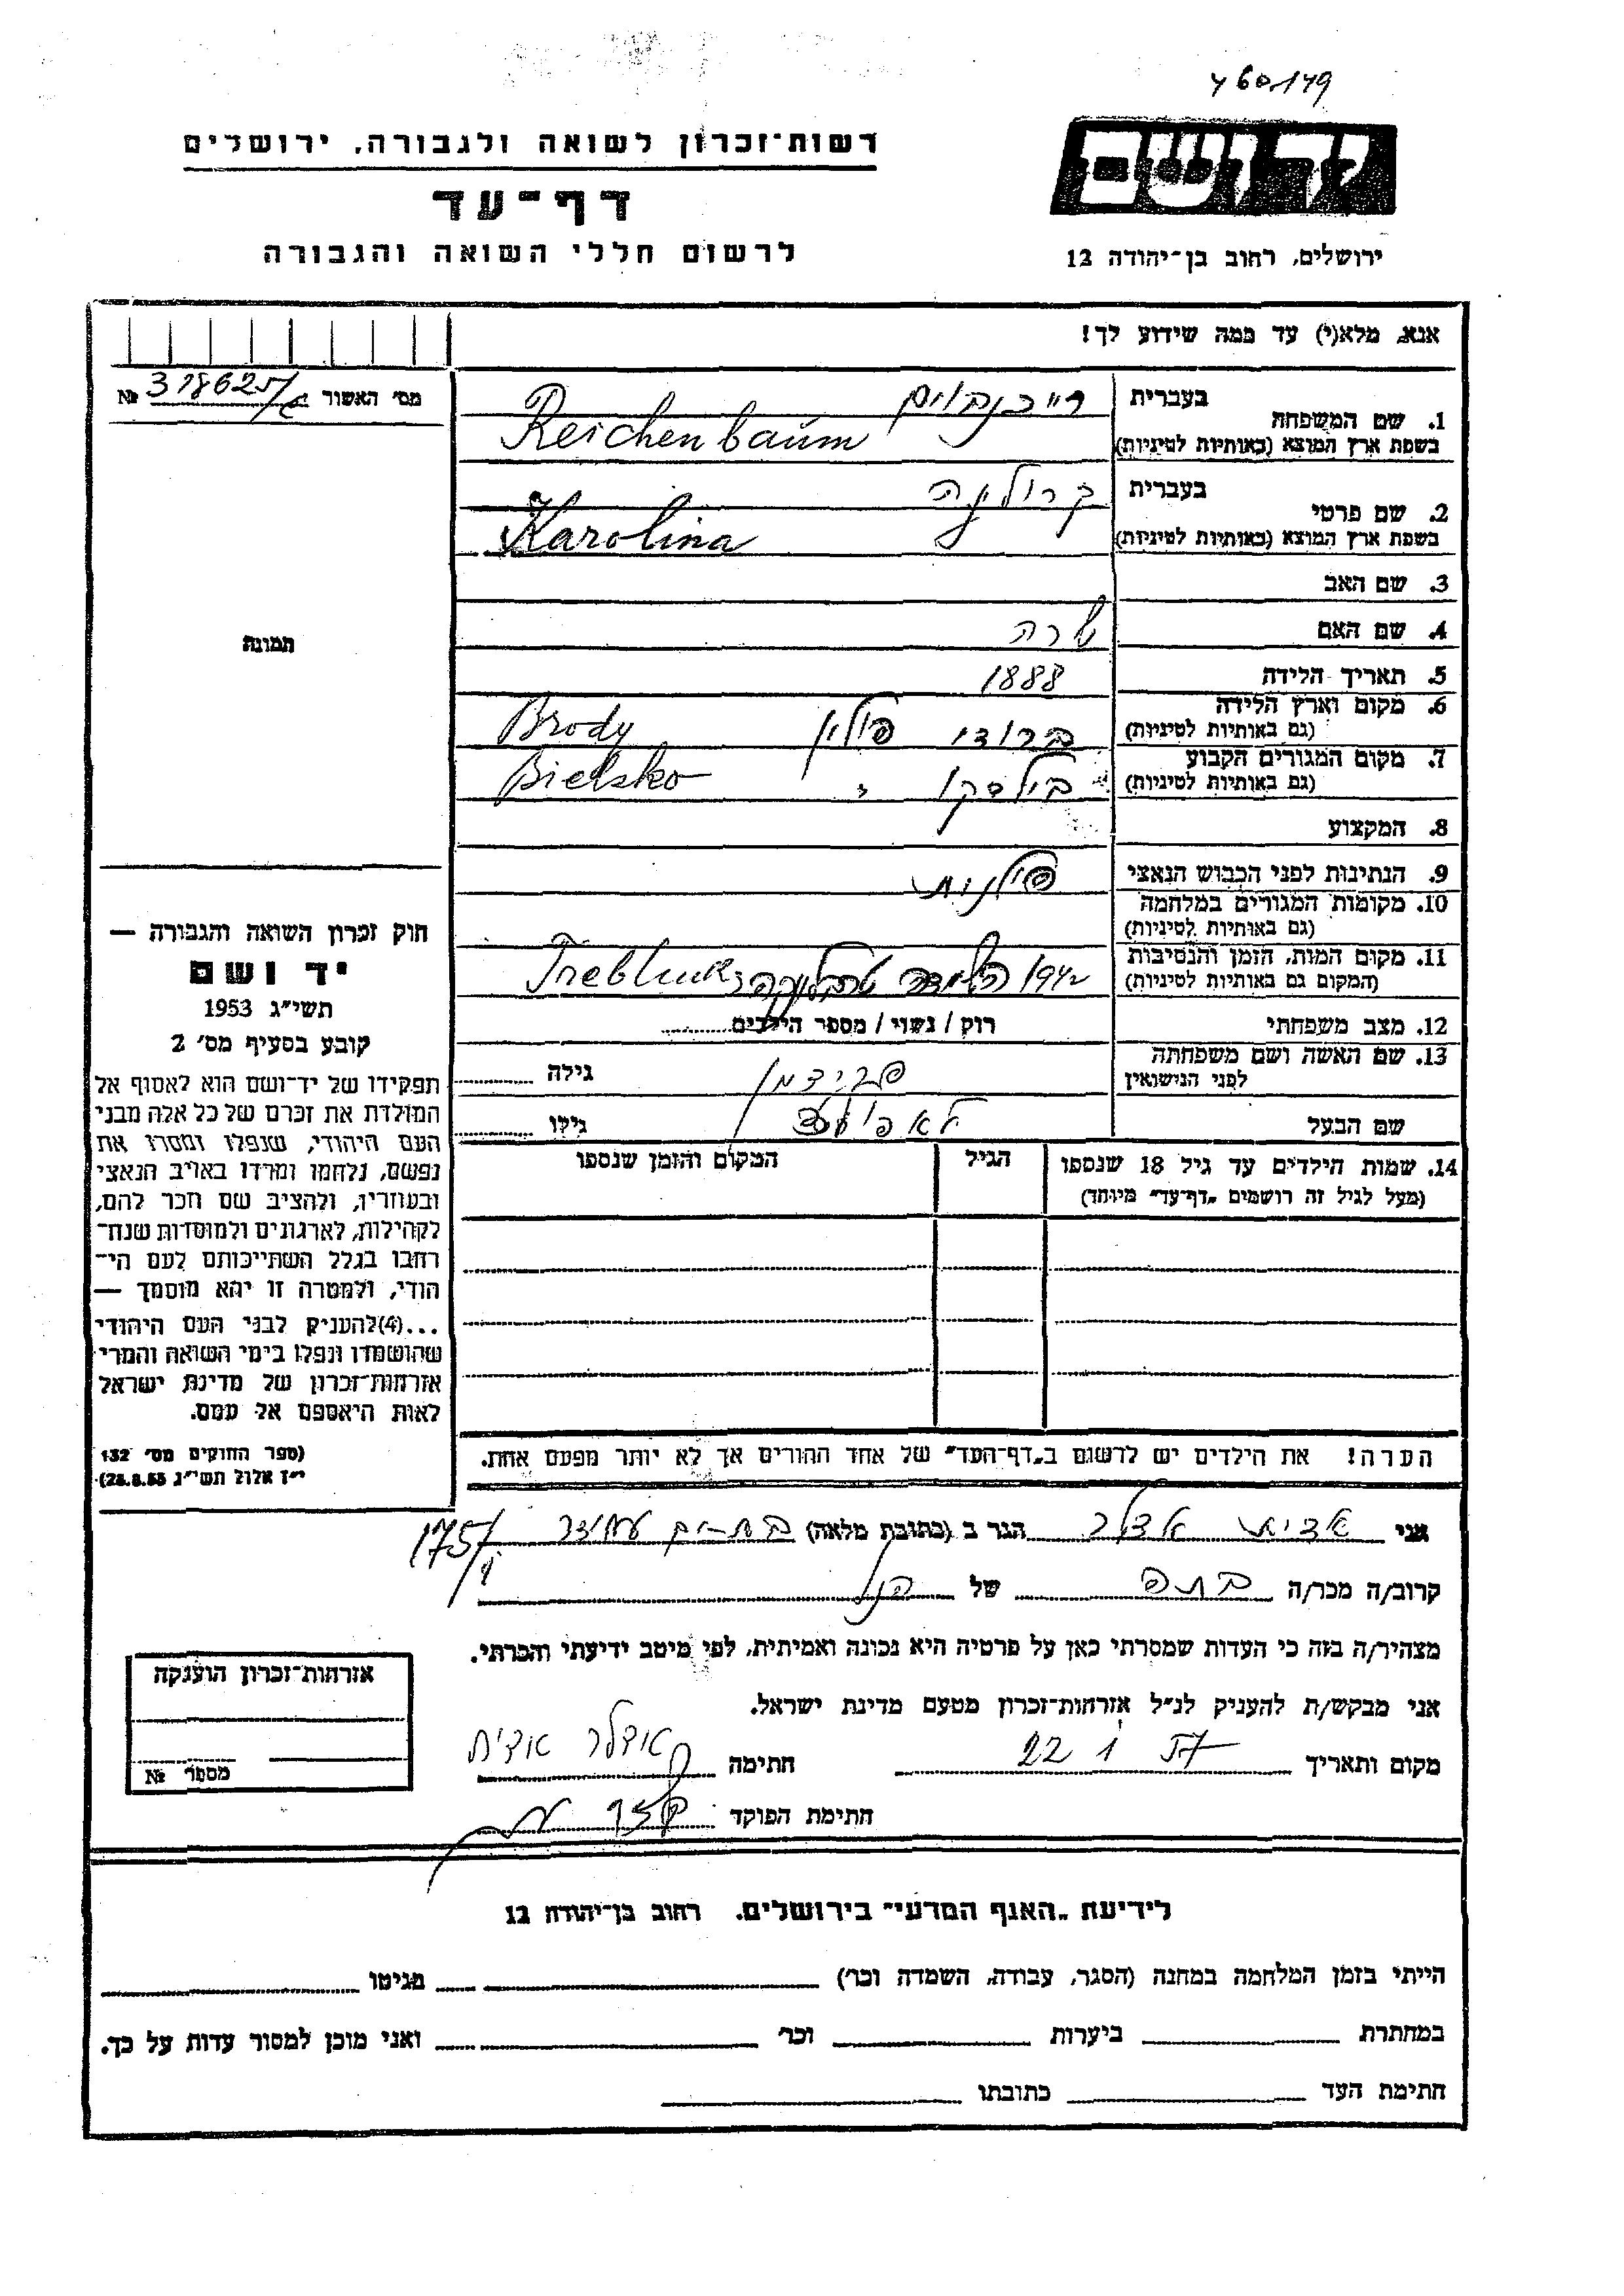 460149
רשות־זכרון לשואה ולגבורה, ירושלים
יד ושם
דף־עד
לרשום חללי השואה והגבורה
ירושלים, רחוב בן־יהודה 12
אנא, מלא(י) עד כמה שידוע לך!
מס׳ האשור 318625 №
1. שם המשפחה בעברית רייכנבוים
בשפת ארץ המוצא (באותיות לטיניות) Reichenbaum
2. שם פרטי בעברית קרולינה
בשפת ארץ המוצא (באותיות לטיניות) Karolina
3. שם האב
4. שם האם שרה
5. תאריך הלידה 1888
6. מקום וארץ הלידה ברודי פולין Brody
(גם באותיות לטיניות)
7. מקום המגורים הקבוע בילסקו Bielsko
(גם באותיות לטיניות)
8. המקצוע
9. הנתינות לפני הכבוש הנאצי פולנית
10. מקומות המגורים במלחמה
(גם באותיות לטיניות)
11. מקום המות, הזמן והנסיבות 1942 טרבלינקה
(המקום גם באותיות לטיניות)
12. מצב משפחתי רוק / נשוי / מספר הילדים
13. שם האשה ושם משפחתה
לפני הנישואין פרידמן גילה
שם הבעל לאפולד גילו
14. שמות הילדים עד גיל 18 שנספו הגיל המקום והזמן שנספו
(מעל לגיל זה רושמים „דף־עד״ מיוחד)
הערה! את הילדים יש לרשום ב„דף־העד״ של אחד ההורים אך לא יותר מפעם אחת.
תמונה
חוק זכרון השואה והגבורה —
יד ושם
תשי״ג 1953
קובע בסעיף מס׳ 2
תפקידו של יד־ושם הוא לאסוף אל
המולדת את זכרם של כל אלה מבני
העם היהודי, שנפלו ומסרו את
נפשם, נלחמו ומרדו באויב הנאצי
ובעוזריו, ולהציב שם וזכר להם,
לקהילות, לארגונים ולמוסדות שנח־
רבו בגלל השתייכותם לעם הי־
הודי, ולמטרה זו יהא מוסמך —
...(4)להעניק לבני העם היהודי
שהושמדו ונפלו בימי השואה והמרי
אזרחות־זכרון של מדינת ישראל
לאות היאספם אל עמם.
(ספר החוקים מס׳ 132
י״ז אלול תשי״ג 28.8.53)
אני אדית אדלר הגר ב (כתובת מלאה) בת-ים 175/
קרוב/ה מכר/ה בתה של הנ״ל
מצהיר/ה בזה כי העדות שמסרתי כאן על פרטיה היא נכונה ואמיתית, לפי מיטב ידיעתי והכרתי.
אני מבקש/ת להעניק לנ״ל אזרחות־זכרון מטעם מדינת ישראל.
מקום ותאריך 22 1 57 חתימה אדלר אדית
חתימת הפוקד
אזרחות־זכרון הוענקה
מספר №
לידיעת „האגף המדעי״ בירושלים, רחוב בן־יהודה 12
הייתי בזמן המלחמה במחנה (הסגר, עבודה, השמדה וכר׳) מגיטו
במחתרת ביערות וכר׳ ואני מוכן למסור עדות על כך.
חתימת העד כתובתו